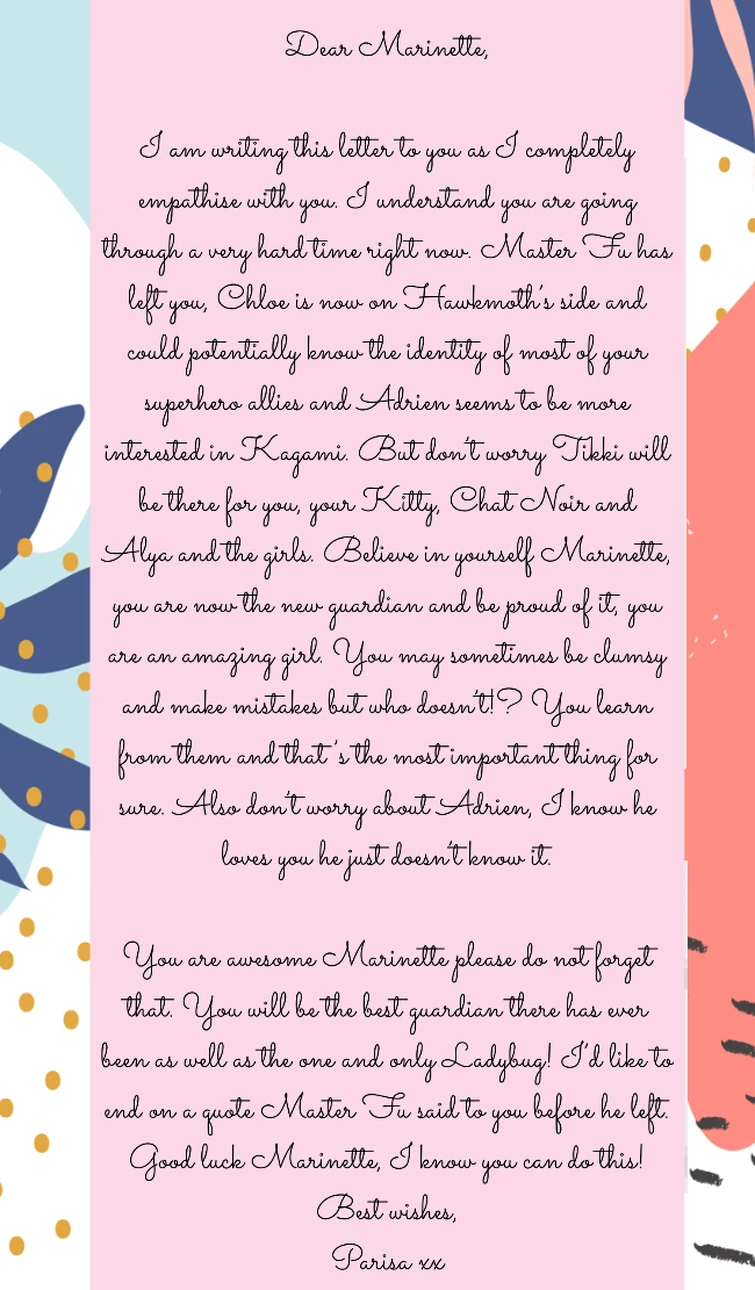 Dear Marinette,
I am writing this letter to you as I completely
empathise with you. I understand you are going
through a very hard time right now. Master Fu has
left you, Chloe is now on Hawkmoth's side and
could potentially know the identity of most of your
superhero allies and Adrien seems to be more
interested in Kagami. But don't worry Tikki will
be there for you, your Kitty, Chat Noir and
Alya and the girls. Believe in yourself Marinette,
you are now the new guardian and be proud of it, you
are an amazing girl. You may sometimes be clumsy
and make mistakes but who doesn't!? You learn
from them and that 's the most important thing for
sure. Also don't worry about Adrien, I know he
loves you he just doesn't know it.
You are awesome Marinette please do not forget
that. You will be the best guardian there has ever
been as well as the one and only Ladybug! I'd like to
end on a quote Master Fu said to you before he left.
Good luck Marinette, I know you can do this!
Best wishes,
Parisa xx